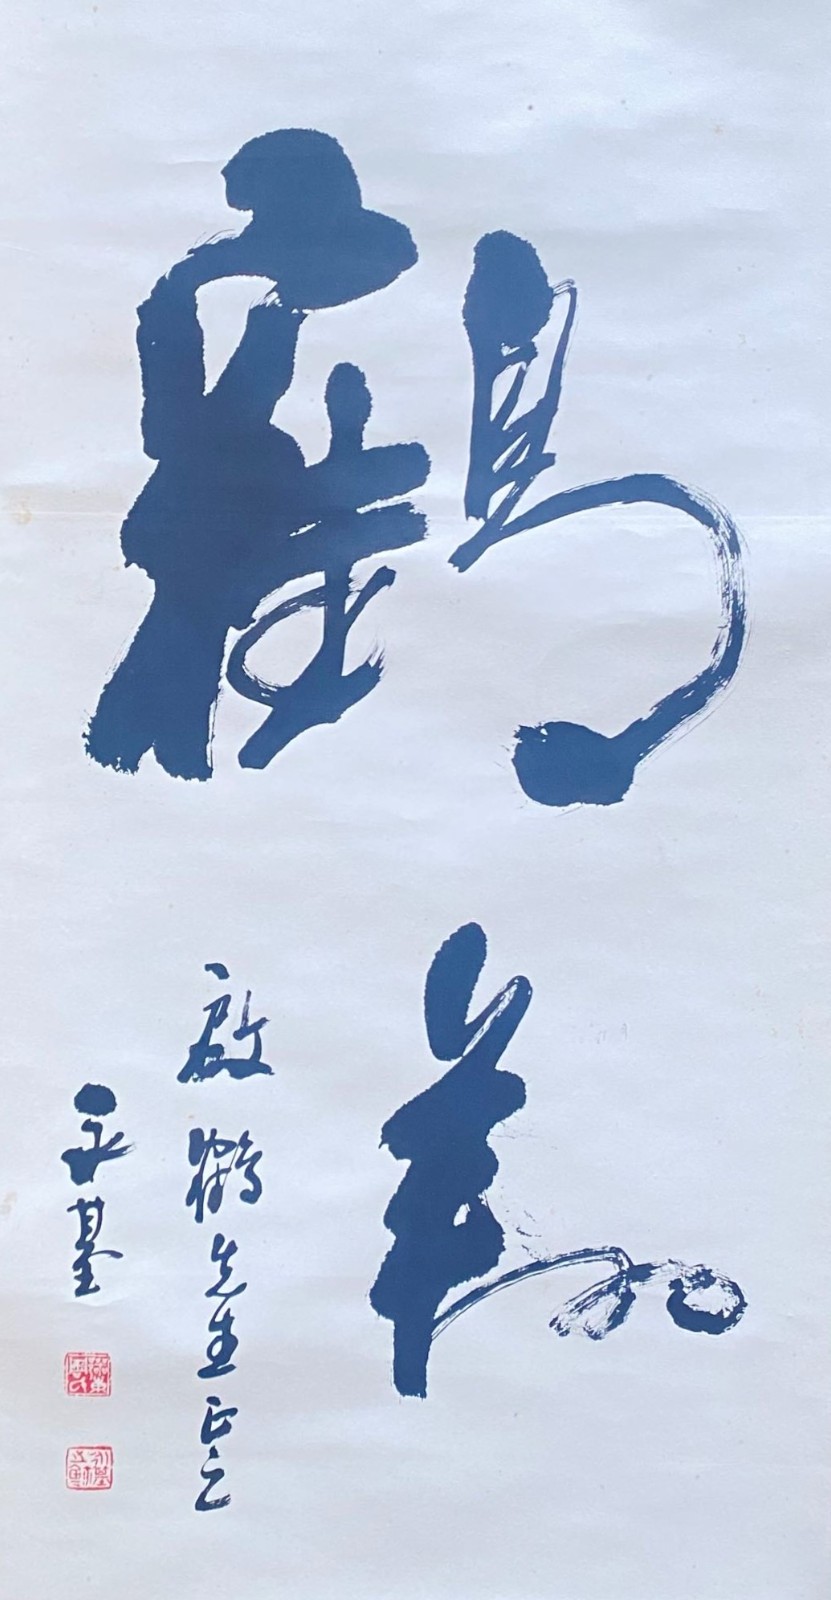 鶴翔
啟鶴先生正之
永基